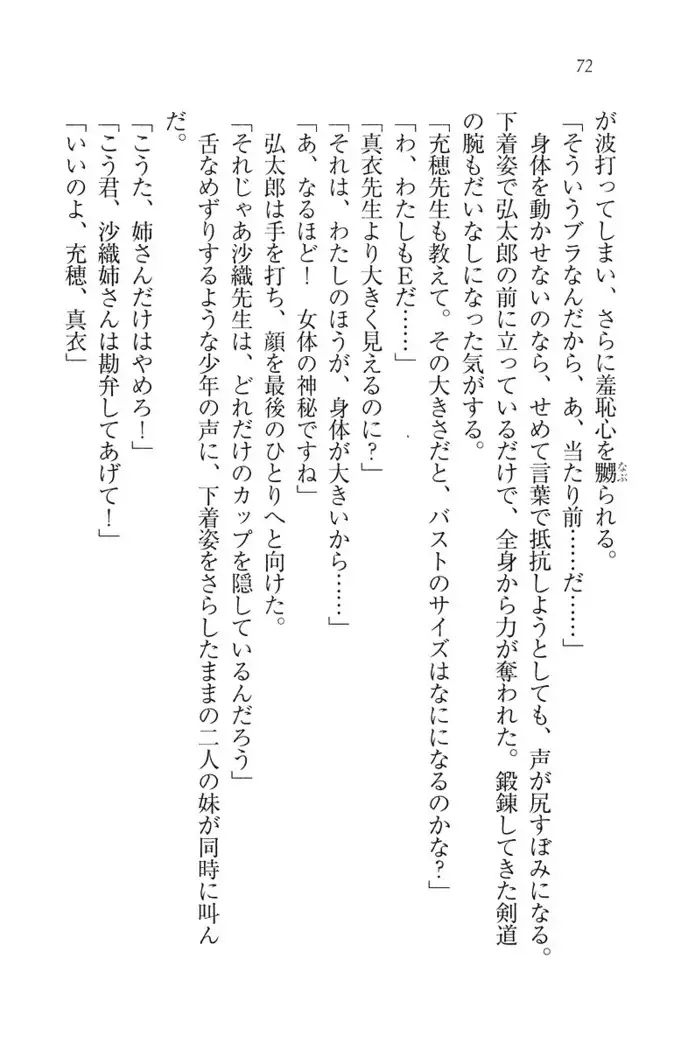 72
が波打ってしまい、さらに羞恥心を嬲られる。
「そういうブラなんだから、あ、当たり前……だ……」
身体を動かせないのなら、せめて言葉で抵抗しようとしても、声が尻すぼみになる。
下着姿で弘太郎の前に立っているだけで、全身から力が奪われた。鍛錬してきた剣道
の腕もだいなしになった気がする。
「充穂先生も教えて。その大きさだと、バストのサイズはなにになるのかな？」
「わ、わたしもEだ……」
「真衣先生より大きく見えるのに？」
「それは、わたしのほうが、身体が大きいから……」
「あ、なるほど！　女体の神秘ですね」
弘太郎は手を打ち、顔を最後のひとりへと向けた。
「それじゃあ沙織先生は、どれだけのカップを隠しているんだろう」
舌なめずりするような少年の声に、下着姿をさらしたままの二人の妹が同時に叫ん
だ。
「こうた、姉さんだけはやめろ！」
「こう君、沙織姉さんは勘弁してあげて！」
「いいのよ、充穂、真衣」